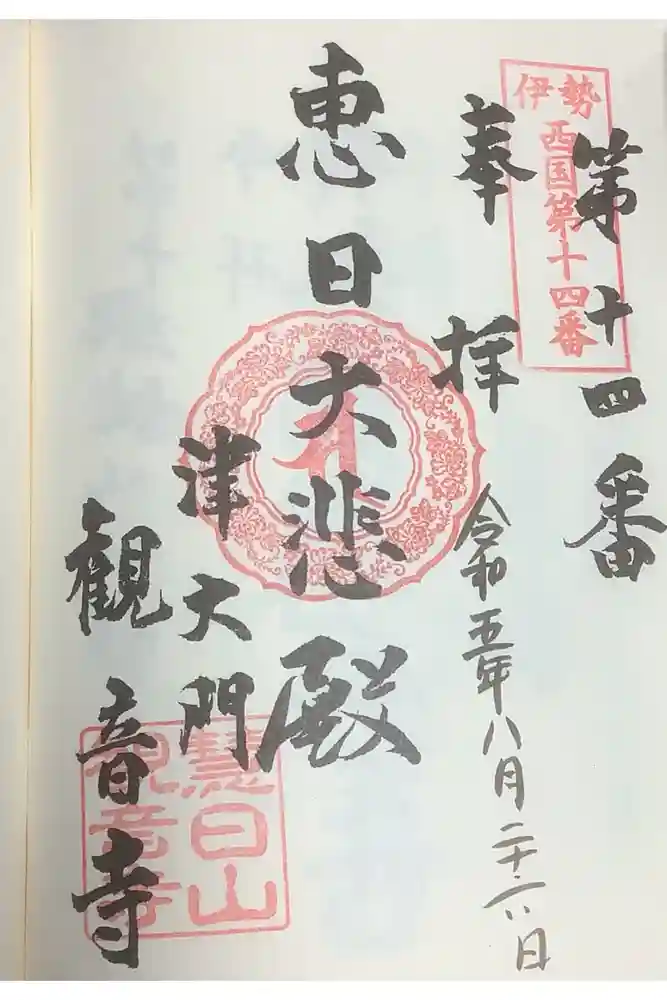 第十四番
伊勢
西国第十四番
奉拝
令和五年八月二十六日
恵日大悲殿
津大門
観音寺
慧日山
観音寺